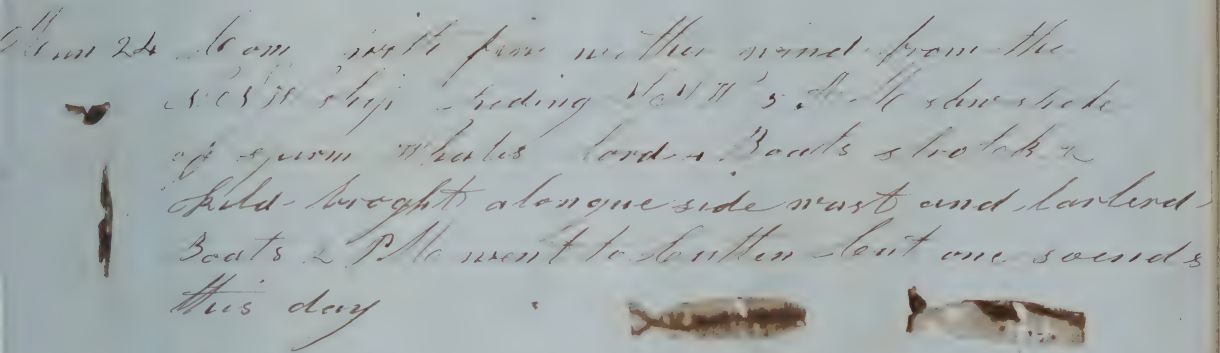 24 Com with fine wether wind from the
ship heding saw shole
of spurm Whales lord Boats strock &
kild broght alongue side wast and larberd
Boats 2 P M went to Cutten Cut one so ends
this day